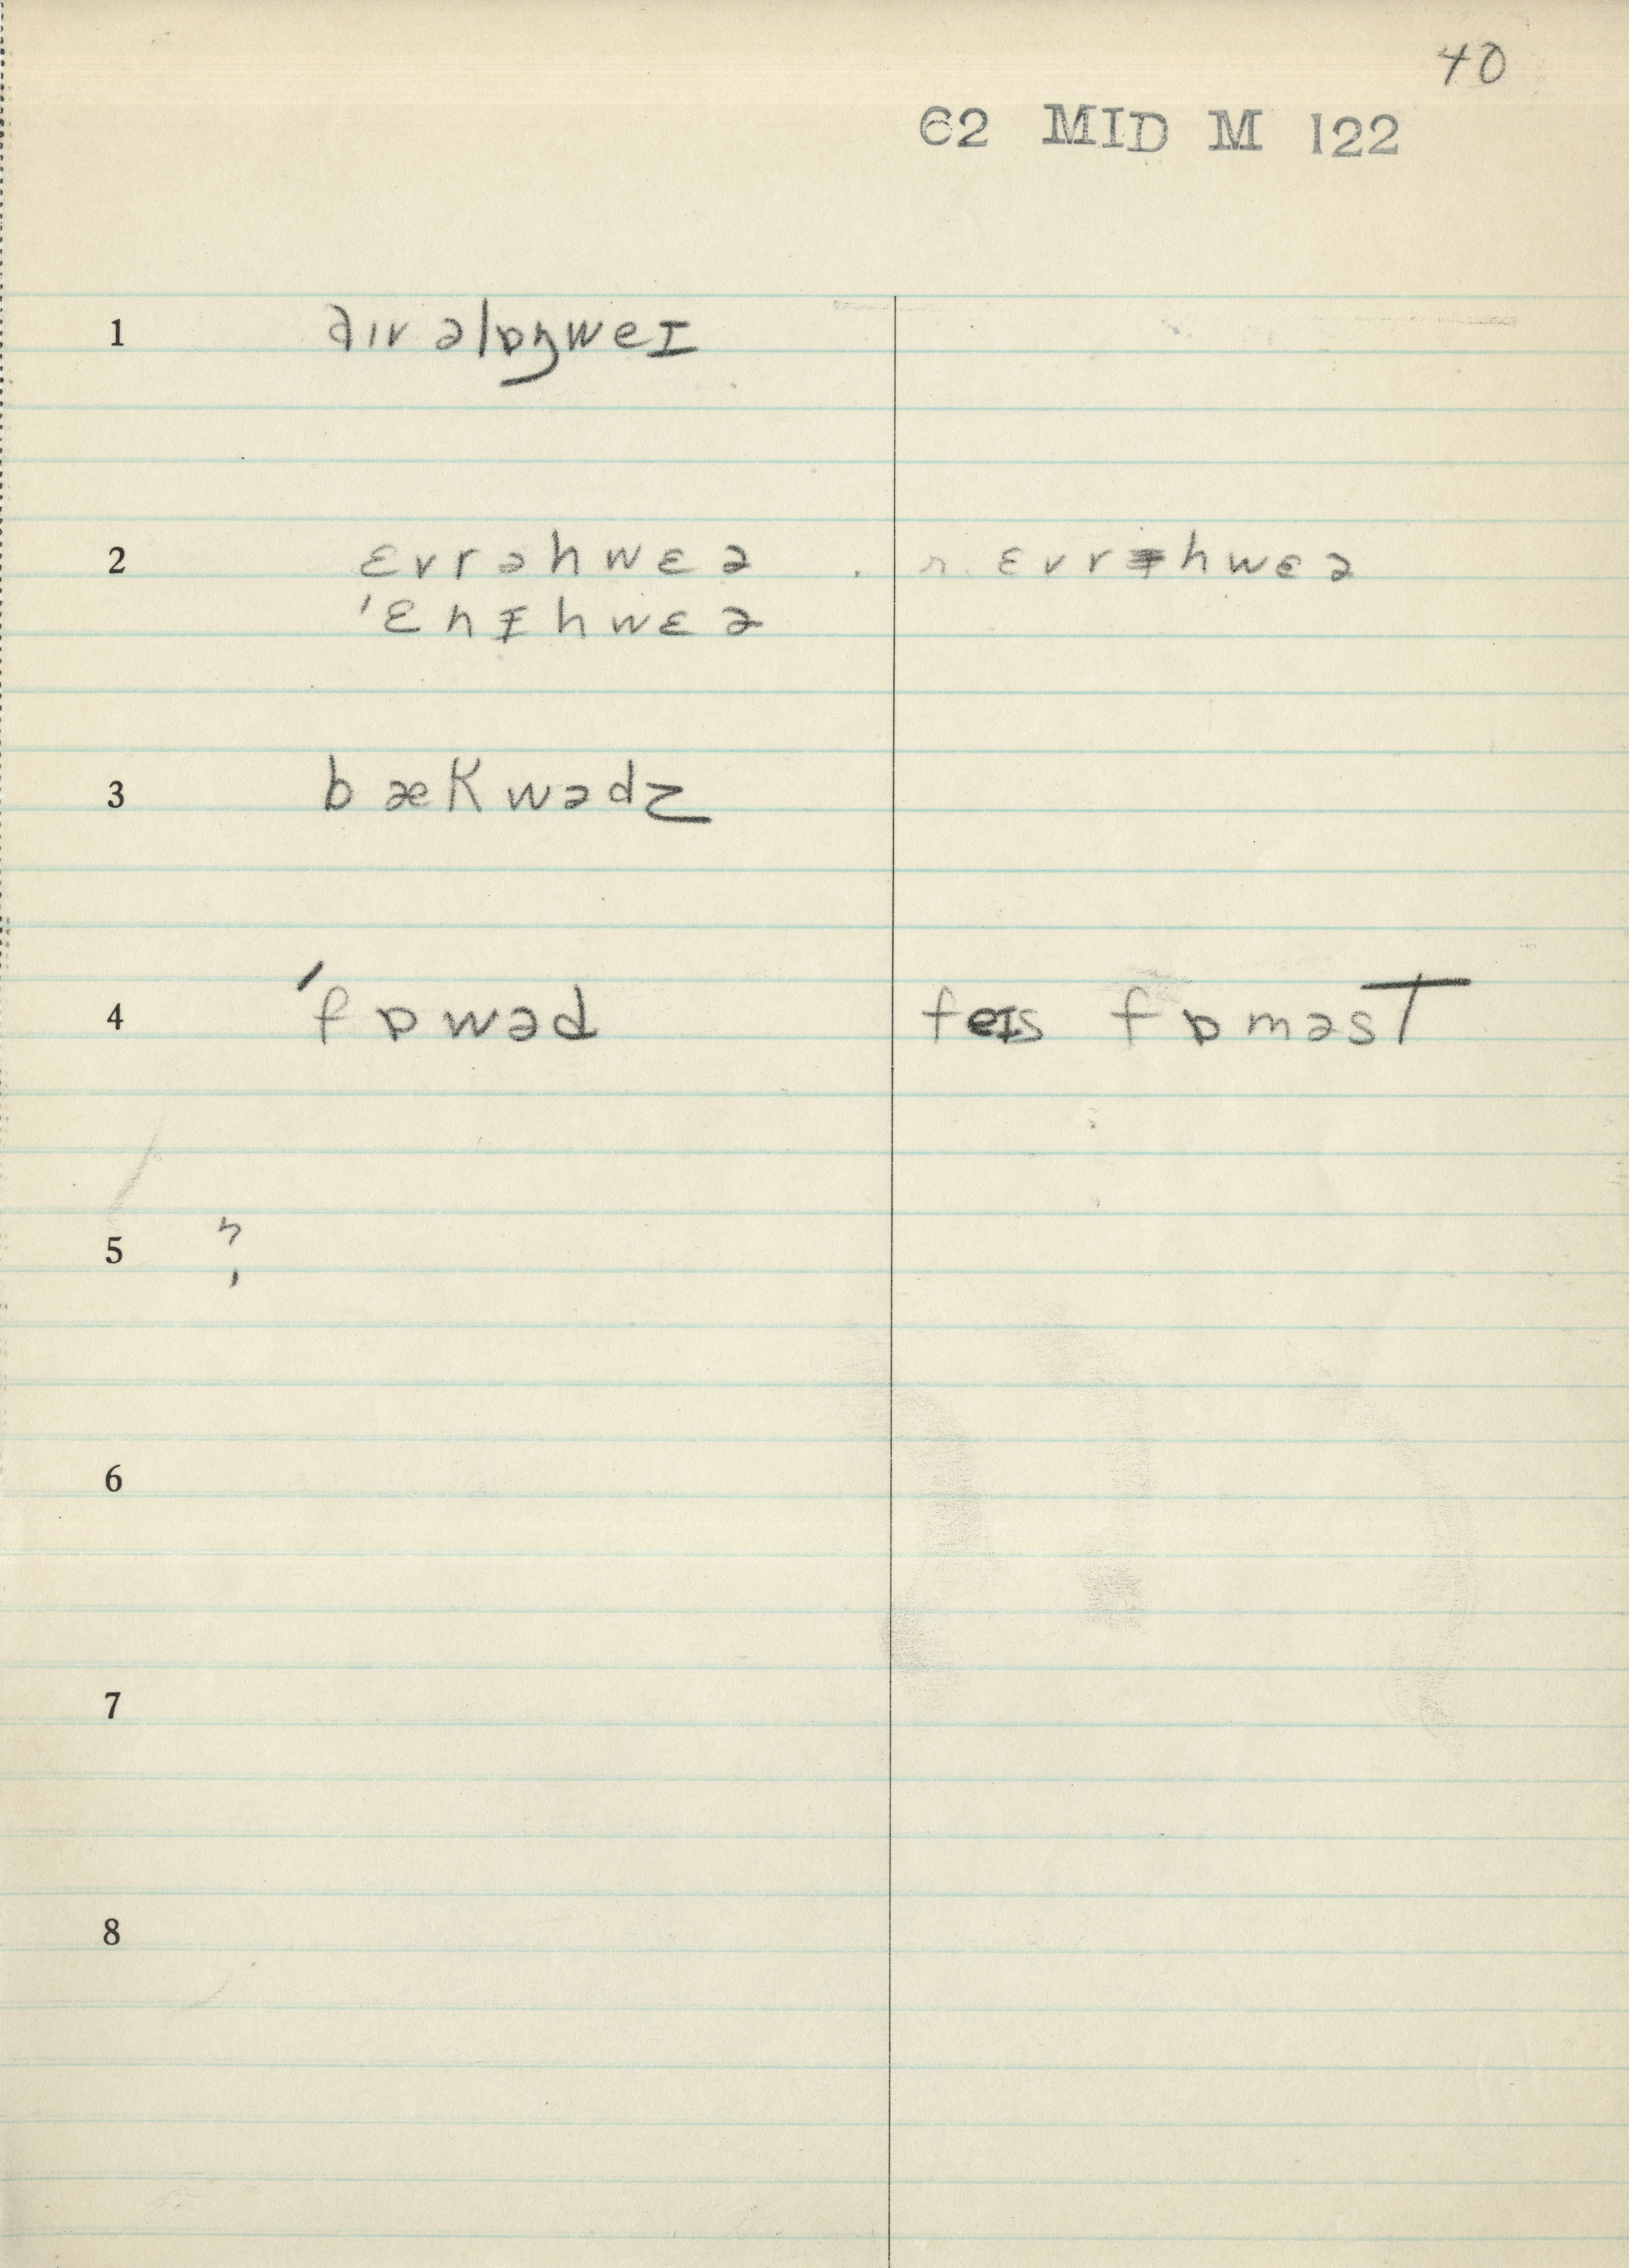 40
62 MID M 122
1 əɪv əlɒŋweɪ
2 ɛvrəhwɛə . r. ɛvrɪhwɛə
'ɛnɪhwɛə
3 bækwədz
4 'fɒwəd feɪs fɒməsT
5 ?
6
7
8